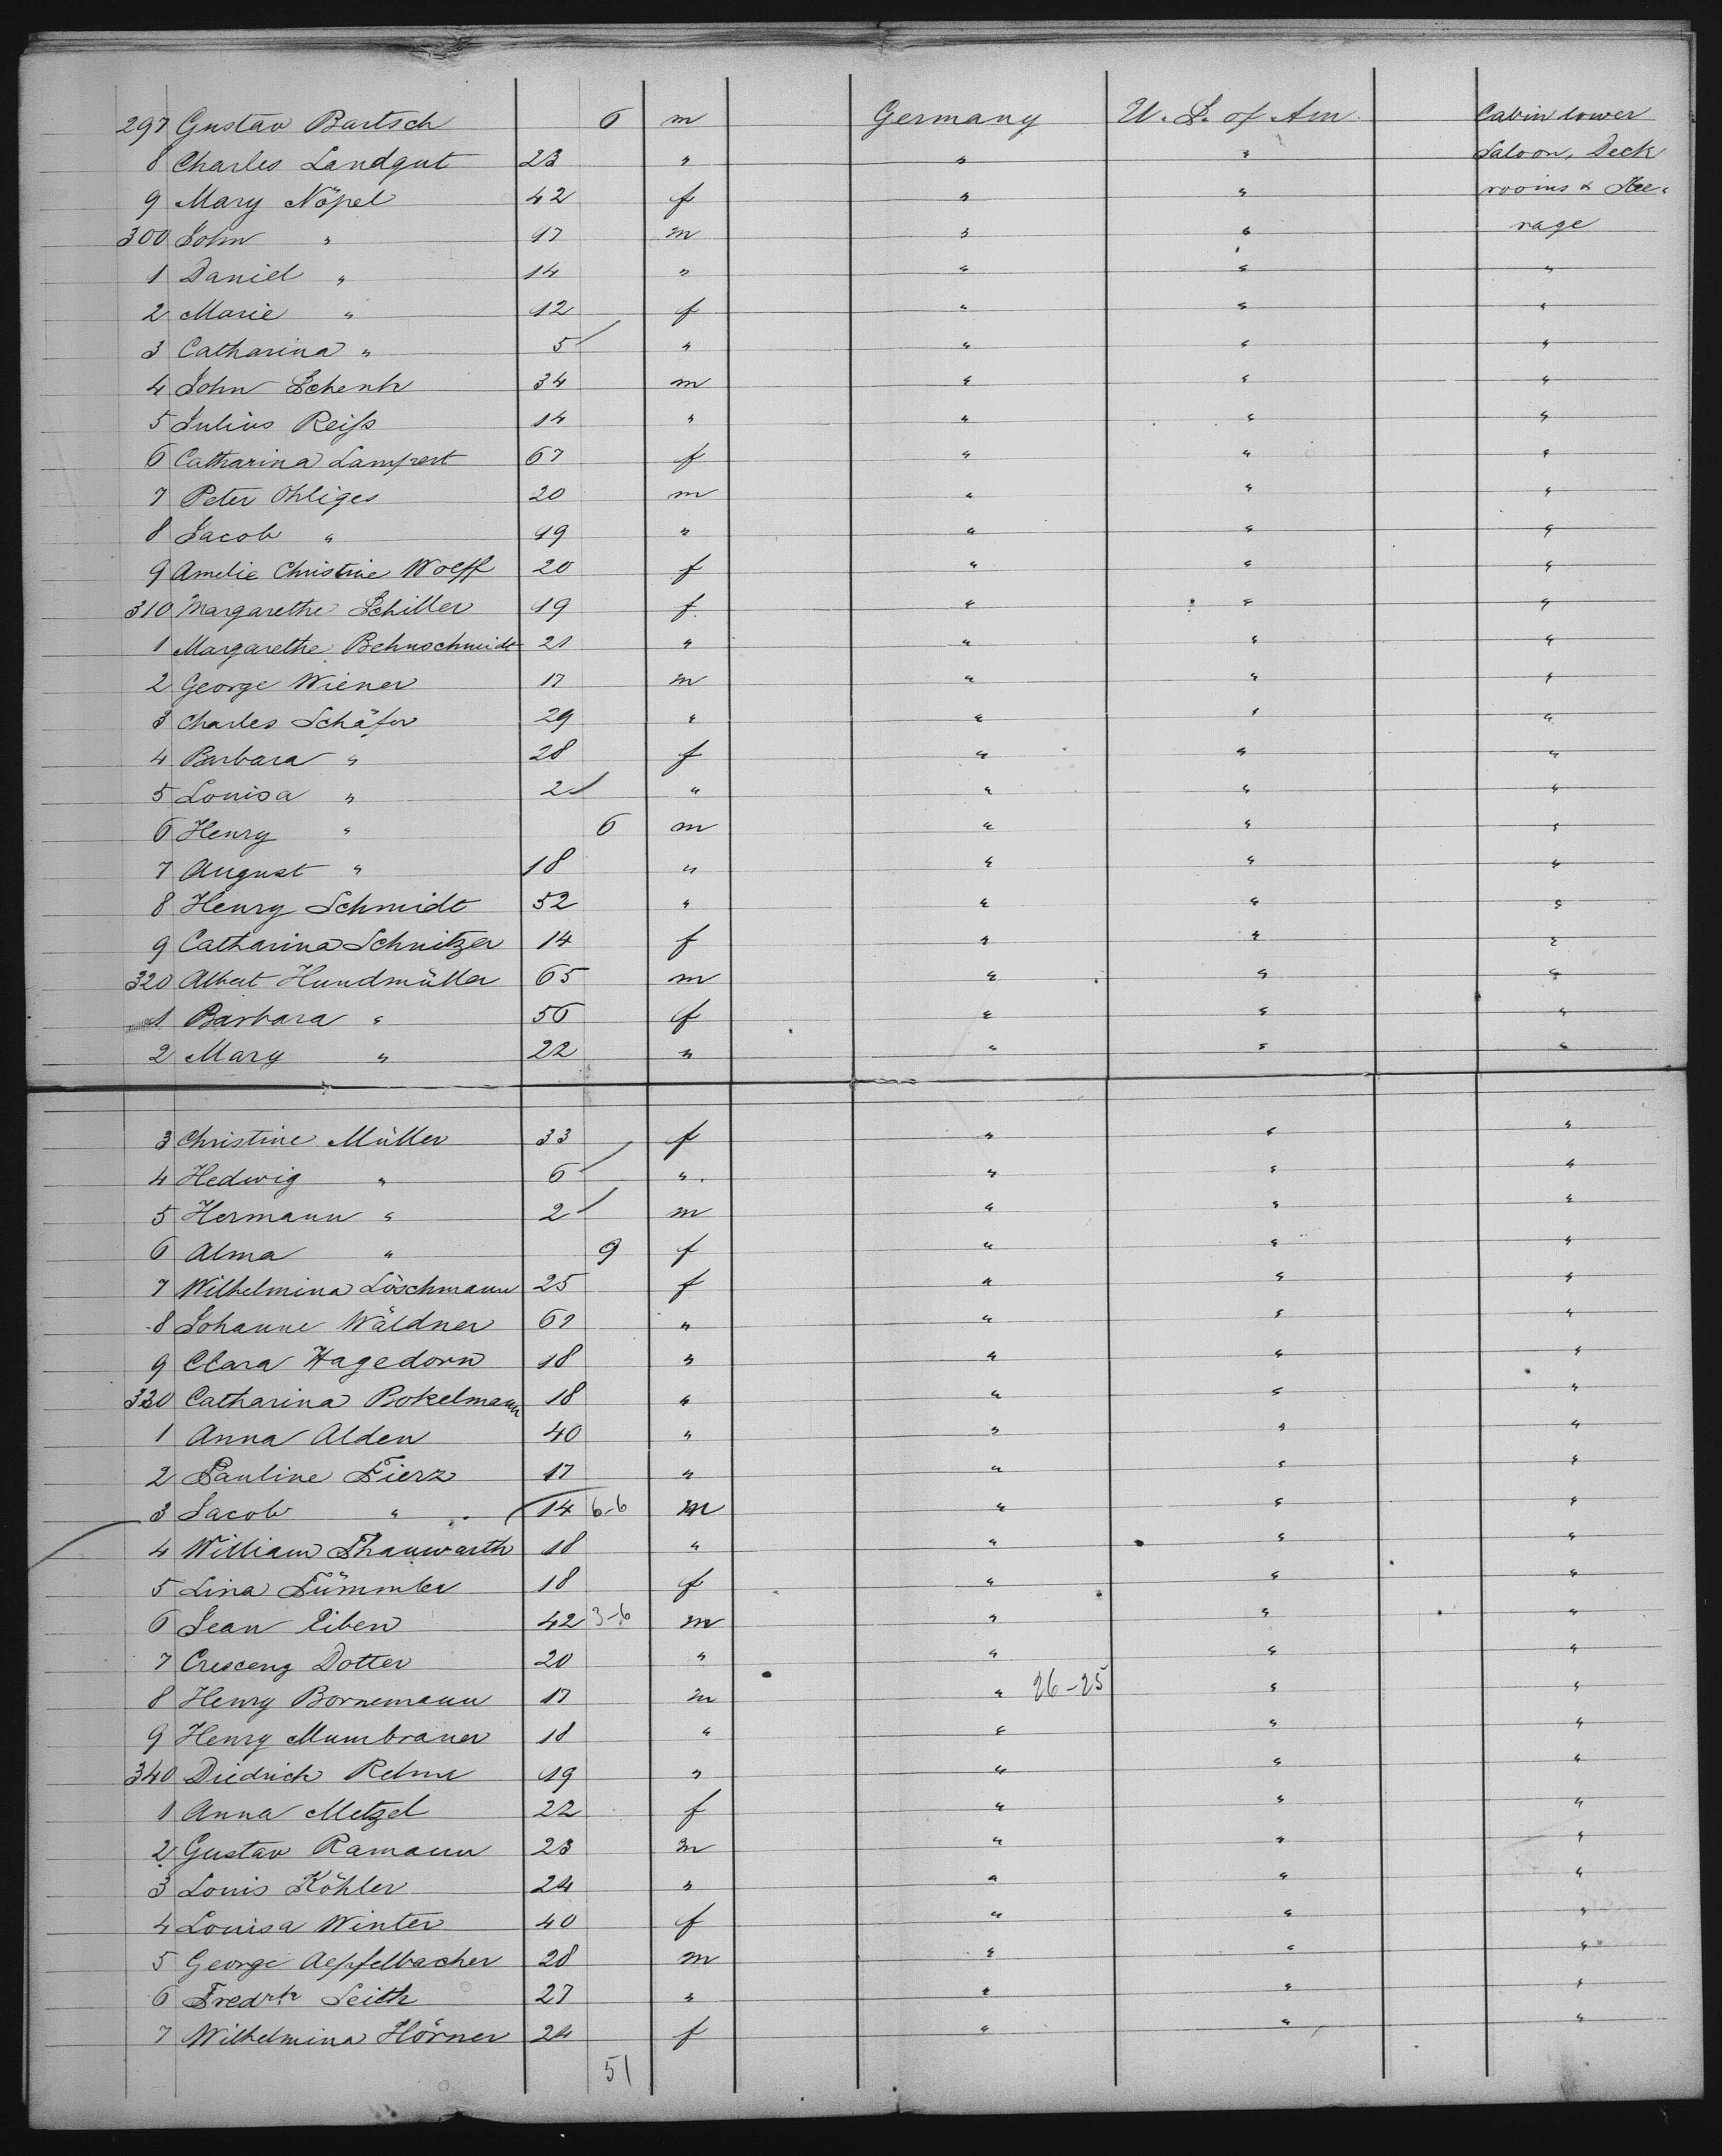 297 Gustav Bartsch 6 m Germany U. S. of Am. Cabin lower
8 Charles Landgut 23 " " " Saloon, Deck
9 Mary Nöpel 42 f " " rooms & Stee-
300 John " 17 m " " rage
1 Daniel " 14 " " " "
2 Marie " 12 f " " "
3 Catharina " 5 " " " "
4 John Schenk 34 m " " "
5 Julius Reiß 14 " " " "
6 Catharina Lampert 67 f " " "
7 Peter Ohliges 20 m " " "
8 Jacob " 19 " " " "
9 Amelie Christine Wolff 20 f " " "
310 Margarethe Schiller 19 f. " " "
1 Margarethe Behnschmidt 21 " " " "
2 George Wiener 17 m " " "
3 Charles Schäfer 29 " " " "
4 Barbara " 28 f " " "
5 Louisa " 2 " " " "
6 Henry " 6 m " " "
7 August " 18 " " " "
8 Henry Schmidt 52 " " " "
9 Catharina Schnitzer 14 f " " "
320 Albert Hundmüller 65 m " " "
1 Barbara " 56 f " " "
2 Mary " 22 " " " "
3 Christine Müller 33 f " " "
4 Hedwig " 6 " " " "
5 Hermann " 2 m " " "
6 Alma " 9 f " " "
7 Wilhelmina Löschmann 25 f " " "
8 Johanne Wäldner 61 " " " "
9 Clara Hagedorn 18 " " " "
330 Catharina Bokelmann 18 " " " "
1 Anna Alden 40 " " " "
2 Pauline Fierz 17 " " " "
3 Jacob " 14 6-6 m " " "
4 William Thauwarth 18 " " " "
5 Lina Tümmler 18 f " " "
6 Jean Eiben 42 3-6 m " " "
7 Crescenz Dotter 20 " " " "
8 Henry Bornemann 17 m " 26-25 " "
9 Henry Mumbrauer 18 " " " "
340 Diedrich 19 " " " "
1 Anna Metzel 22 f " " "
2 Gustav Ramann 23 m " " "
3 Louis Köhler 24 " " " "
4 Louisa Winter 40 f " " "
5 George Aepfelbacher 28 m " " "
6 Fredrk Leith 27 " " " "
7 Wilhelmina Hörner 24 f " " "
51